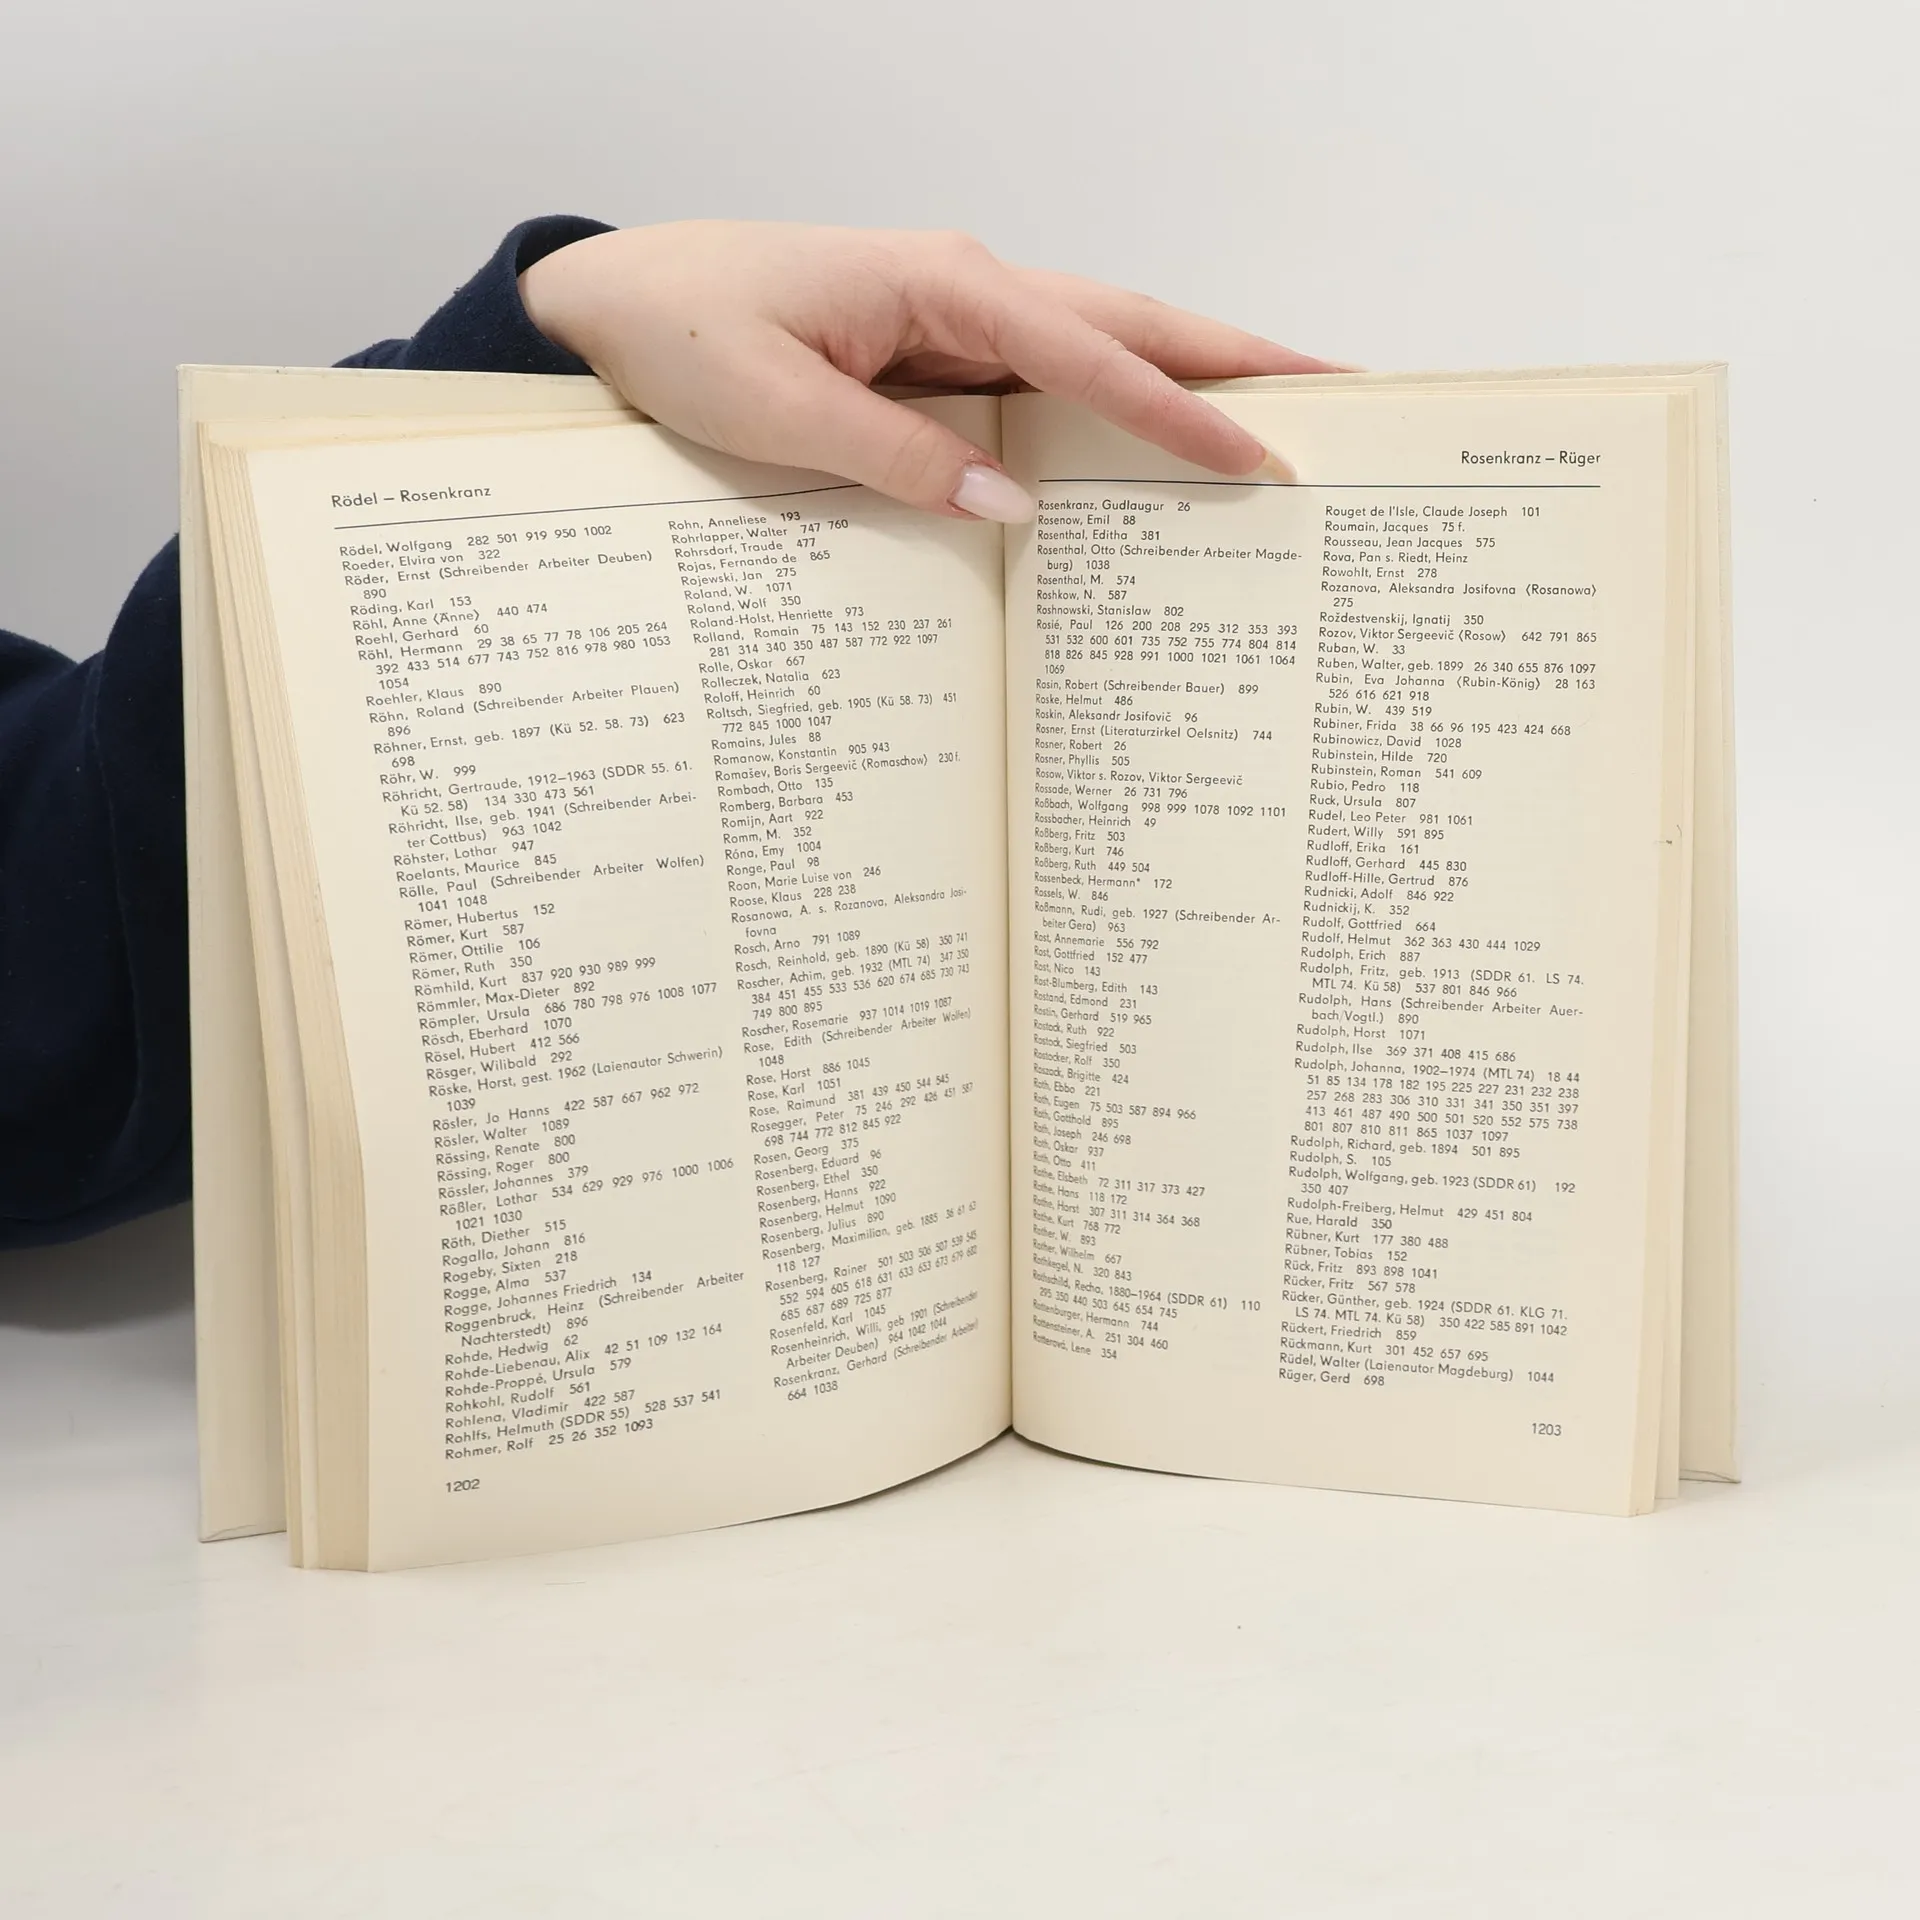 Rödel – Rosenkranz
Rödel, Wolfgang 282 501 919 950 1002
Roeder, Elvira von 322
Röder, Ernst (Schreibender Arbeiter Deuben)
890
Röding, Karl 153
Röhl, Anne ⟨Änne⟩ 440 474
Roehl, Gerhard 60
Röhl, Hermann 29 38 65 77 78 106 205 264
392 433 514 677 743 752 816 978 980 1053
1054
Roehler, Klaus 890
Röhn, Roland (Schreibender Arbeiter Plauen)
896
Röhner, Ernst, geb. 1897 (Kü 52. 58. 73) 623
698
Röhr, W. 999
Röhricht, Gertraude, 1912–1963 (SDDR 55. 61.
Kü 52. 58) 134 330 473 561
Röhricht, Ilse, geb. 1941 (Schreibender Arbei-
ter Cottbus) 963 1042
Röhster, Lothar 947
Roelants, Maurice 845
Rölle, Paul (Schreibender Arbeiter Wolfen)
1041 1048
Römer, Hubertus 152
Römer, Kurt 587
Römer, Ottilie 106
Römer, Ruth 350
Römhild, Kurt 837 920 930 989 999
Römmler, Max-Dieter 892
Römpler, Ursula 686 780 798 976 1008 1077
Rösch, Eberhard 1070
Rösel, Hubert 412 566
Rösger, Wilibald 292
Röske, Horst, gest. 1962 (Laienautor Schwerin)
1039
Rösler, Jo Hanns 422 587 667 962 972
Rösler, Walter 1089
Rössing, Renate 800
Rössing, Roger 800
Rössler, Johannes 379
Rößler, Lothar 534 629 929 976 1000 1006
1021 1030
Röth, Diether 515
Rogalla, Johann 816
Rogeby, Sixten 218
Rogge, Alma 537
Rogge, Johannes Friedrich 134
Roggenbruck, Heinz (Schreibender Arbeiter
Nachterstedt) 896
Rohde, Hedwig 62
Rohde-Liebenau, Alix 42 51 109 132 164
Rohde-Proppé, Ursula 579
Rohkohl, Rudolf 561
Rohlena, Vladimir 422 587
Rohlfs, Helmuth (SDDR 55) 528 537 541
Rohmer, Rolf 25 26 352 1093
1202
Rohn, Anneliese 193
Rohrlapper, Walter 747 760
Rohrsdorf, Traude 477
Rojas, Fernando de 865
Rojewski, Jan 275
Roland, W. 1071
Roland, Wolf 350
Roland-Holst, Henriette 973
Rolland, Romain 75 143 152 230 237 261
281 314 340 350 487 587 772 922 1097
Rolle, Oskar 667
Rolleczek, Natalia 623
Roloff, Heinrich 60
Roltsch, Siegfried, geb. 1905 (Kü 58. 73) 451
772 845 1000 1047
Romains, Jules 88
Romanow, Konstantin 905 943
Romašev, Boris Sergeevič ⟨Romaschow⟩ 230 f.
Rombach, Otto 135
Romberg, Barbara 453
Romijn, Aart 922
Romm, M. 352
Róna, Emy 1004
Ronge, Paul 98
Roon, Marie Luise von 246
Roose, Klaus 228 238
Rosanowa, A. s. Rozanova, Aleksandra Josi-
fovna
Rosch, Arno 791 1089
Rosch, Reinhold, geb. 1890 (Kü 58) 350 741
Roscher, Achim, geb. 1932 (MTL 74) 347 350
384 451 455 533 536 620 674 685 730 743
749 800 895
Roscher, Rosemarie 937 1014 1019 1087
Rose, Edith (Schreibender Arbeiter Wolfen)
1048
Rose, Horst 886 1045
Rose, Karl 1051
Rose, Raimund 381 439 450 544 545
Rosegger, Peter 75 246 292 426 451 587
698 744 772 812 845 922
Rosen, Georg 375
Rosenberg, Eduard 96
Rosenberg, Ethel 350
Rosenberg, Hanns 922
Rosenberg, Helmut 1090
Rosenberg, Julius 890
Rosenberg, Maximilian, geb. 1885 36 61 63
118 127
Rosenberg, Rainer 501 503 506 507 539 545
552 594 605 618 631 633 653 673 679 682
685 687 689 725 877
Rosenfeld, Karl 1045
Rosenheinrich, Willi, geb 1901 (Schreibender
Arbeiter Deuben) 964 1042 1044
Rosenkranz, Gerhard (Schreibender Arbeiter)
664 1038
Rosenkranz – Rüger
Rosenkranz, Gudlaugur 26
Rosenow, Emil 88
Rosenthal, Editha 381
Rosenthal, Otto (Schreibender Arbeiter Magde-
burg) 1038
Rosenthal, M. 574
Roshkow, N. 587
Roshnowski, Stanislaw 802
Rosié, Paul 126 200 208 295 312 353 393
531 532 600 601 735 752 755 774 804 814
818 826 845 928 991 1000 1021 1061 1064
1069
Rosin, Robert (Schreibender Bauer) 899
Roske, Helmut 486
Roskin, Aleksandr Josifovič 96
Rosner, Ernst (Literaturzirkel Oelsnitz) 744
Rosner, Robert 26
Rosner, Phyllis 505
Rosow, Viktor s. Rozov, Viktor Sergeevič
Rossade, Werner 26 731 796
Roßbach, Wolfgang 998 999 1078 1092 1101
Rossbacher, Heinrich 49
Roßberg, Fritz 503
Roßberg, Kurt 746
Roßberg, Ruth 449 504
Rossenbeck, Hermann* 172
Rossels, W. 846
Roßmann, Rudi, geb. 1927 (Schreibender Ar-
beiter Gera) 963
Rost, Annemarie 556 792
Rost, Gottfried 152 477
Rost, Nico 143
Rost-Blumberg, Edith 143
Rostand, Edmond 231
Rostin, Gerhard 519 965
Rostock, Ruth 922
Rostock, Siegfried 503
Rostocker, Rolf 350
Roszack, Brigitte 424
Roth, Ebbo 221
Roth, Eugen 75 503 587 894 966
Roth, Gotthold 895
Roth, Joseph 246 698
Roth, Oskar 937
Roth, Otto 411
Rothe, Elsbeth 72 311 317 373 427
Rothe, Hans 118 172
Rothe, Horst 307 311 314 364 368
Rothe, Kurt 768 772
Rother, W. 893
Rother, Wilhelm 667
Rothkegel, N. 320 843
Rothschild, Recha, 1880–1964 (SDDR 61) 110
295 350 440 503 645 654 745
Rottenburger, Hermann 744
Rottensteiner, A. 251 304 460
Rotterová, Lene 354
Rouget de l'Isle, Claude Joseph 101
Roumain, Jacques 75 f.
Rousseau, Jean Jacques 575
Rova, Pan s. Riedt, Heinz
Rowohlt, Ernst 278
Rozanova, Aleksandra Josifovna ⟨Rosanowa⟩
275
Roždestvenskij, Ignatij 350
Rozov, Viktor Sergeevič ⟨Rosow⟩ 642 791 865
Ruban, W. 33
Ruben, Walter, geb. 1899 26 340 655 876 1097
Rubin, Eva Johanna ⟨Rubin-König⟩ 28 163
526 616 621 918
Rubin, W. 439 519
Rubiner, Frida 38 66 96 195 423 424 668
Rubinowicz, David 1028
Rubinstein, Hilde 720
Rubinstein, Roman 541 609
Rubio, Pedro 118
Ruck, Ursula 807
Rudel, Leo Peter 981 1061
Rudert, Willy 591 895
Rudloff, Erika 161
Rudloff, Gerhard 445 830
Rudloff-Hille, Gertrud 876
Rudnicki, Adolf 846 922
Rudnickij, K. 352
Rudolf, Gottfried 664
Rudolf, Helmut 362 363 430 444 1029
Rudolph, Erich 887
Rudolph, Fritz, geb. 1913 (SDDR 61. LS 74.
MTL 74. Kü 58) 537 801 846 966
Rudolph, Hans (Schreibender Arbeiter Auer-
bach/Vogtl.) 890
Rudolph, Horst 1071
Rudolph, Ilse 369 371 408 415 686
Rudolph, Johanna, 1902–1974 (MTL 74) 18 44
51 85 134 178 182 195 225 227 231 232 238
257 268 283 306 310 331 341 350 351 397
413 461 487 490 500 501 520 552 575 738
801 807 810 811 865 1037 1097
Rudolph, Richard, geb. 1894 501 895
Rudolph, S. 105
Rudolph, Wolfgang, geb. 1923 (SDDR 61) 192
350 407
Rudolph-Freiberg, Helmut 429 451 804
Rue, Harald 350
Rübner, Kurt 177 380 488
Rübner, Tobias 152
Rück, Fritz 893 898 1041
Rücker, Fritz 567 578
Rücker, Günther, geb. 1924 (SDDR 61. KLG 71.
LS 74. MTL 74. Kü 58) 350 422 585 891 1042
Rückert, Friedrich 859
Rückmann, Kurt 301 452 657 695
Rüdel, Walter (Laienautor Magdeburg) 1044
Rüger, Gerd 698
1203